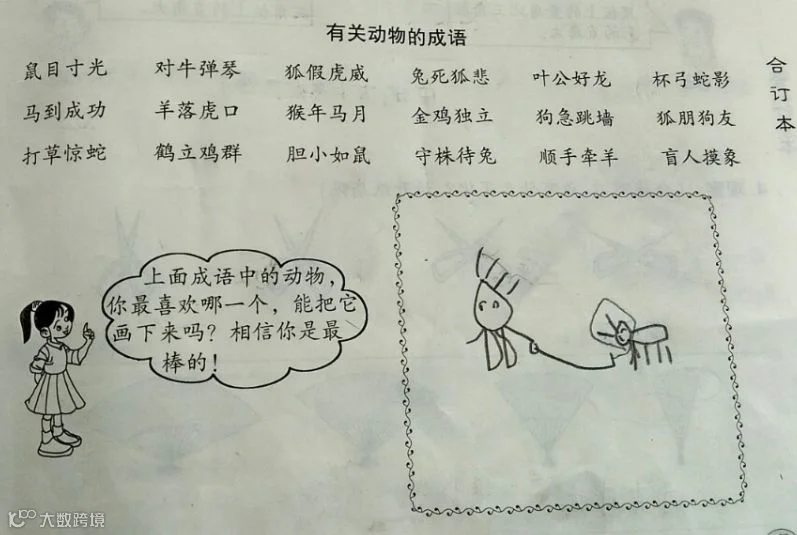 有关动物的成语
鼠目寸光 对牛弹琴 狐假虎威 兔死狐悲 叶公好龙 杯弓蛇影
马到成功 羊落虎口 猴年马月 金鸡独立 狗急跳墙 狐朋狗友
打草惊蛇 鹤立鸡群 胆小如鼠 守株待兔 顺手牵羊 盲人摸象
合订本
上面成语中的动物，
你最喜欢哪一个，能把它
画下来吗？相信你是最
棒的！
大数跨境